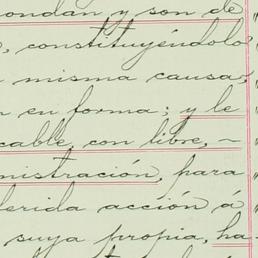 ondan y son de
, constituyéndolo
misma causa,
n en forma; y le
cable, con libre, ~
nistración, para
ferida acción á
suya propia, ha-